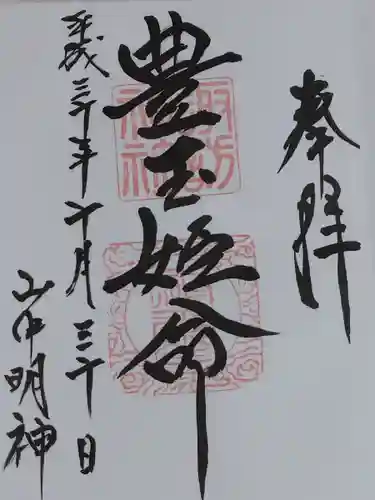 奉拝
豊玉姫命
平成三十年十一月三十日
山中明神